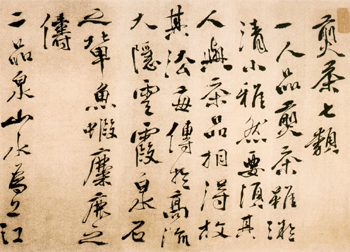 煎茶七類
一人品煎茶雖微
清小雅然要須其
人與茶品相得故
其法每傳於高流
大隱雲霞泉石
之輩魚蝦麋鹿之
儔
二品泉山水為上江